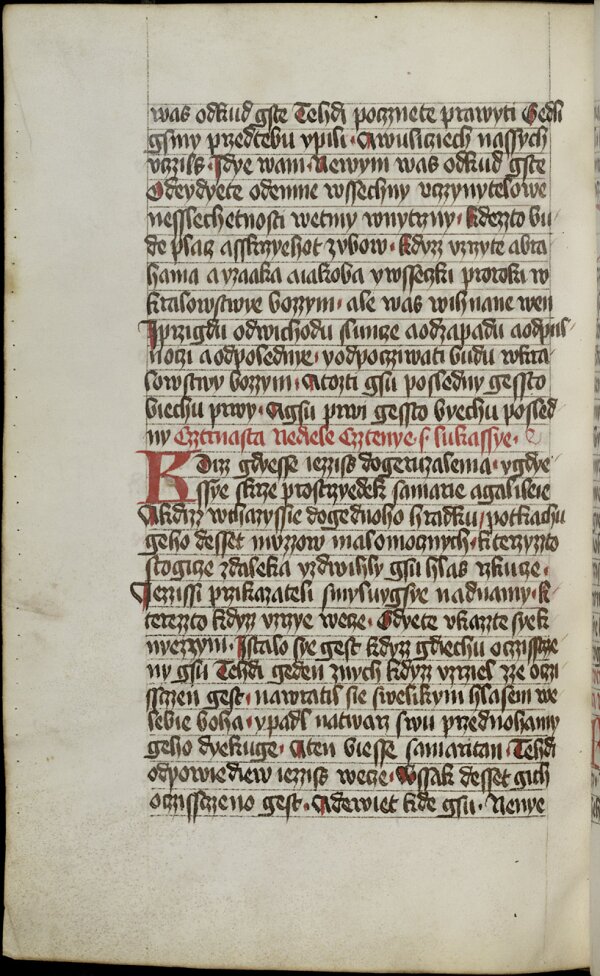 was odkud gste Tehdi pocznete prawyti Gedli
gsmy przedtebu ypili · Awulicziech nassych
vczils · Jdye wam · Newym was odkud gste
Odeydyete odemne wssechny vczynytelowe
nesslechetnosti wetmy wnytrzny · kdezto bu
de placz asskrzyehot zubow · kdyz vzryte abra
hama ayzaaka aiakoba ywsseczki proroki w
kralowstwye bozzym · ale was wihnane wen
Jprzigdu odwichodu sluncze aodzapadu aodpul
noczi aodpolednye · yodpocziwati budu wkra
lowstwy bozzym · Atozti gsu posledny gessto
biechu prwy · Agsu prwi gessto byechu posled
ny Cztrnasta nedele Cztenye · s · lukassye ·
Kdiz gdyesse iezziss dogeruzalema · ygdye
ssye skrze prostrzyedek samarie agalileie
Akdizz wchazyssie dogednoho hradku / potkachu
geho desset muzzow malomocznych · kterzyzto
stogicze zdaleka yzdwihly gsu hlas rzkucze ·
Jezzissi przikazateli smyluygsye nadnamy · k
terezto kdyz vzrzye wecze · Gdyete vkazte syek
nyezzym · Jstalo sye gest kdyz gdiechu oczisscze
ny gsu Tehdi geden znych kdyz vzrziel zze oczi
sstzen gest · nawratil sie swelikym hlasem we
lebie boha · ypadl natwarz swu przednohamy
geho dyekuge · Aten biesse samaritan · Tehdi
odpowiediew iezziss wecze · Wssak desset gich
oczissczeno gest · Adewiet kde gsu · Nenye